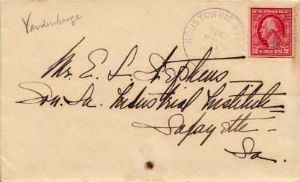 Vandenberge
Mr. E. L. Stephens
Sou. La. Industrial Institute
Lafayette
La.